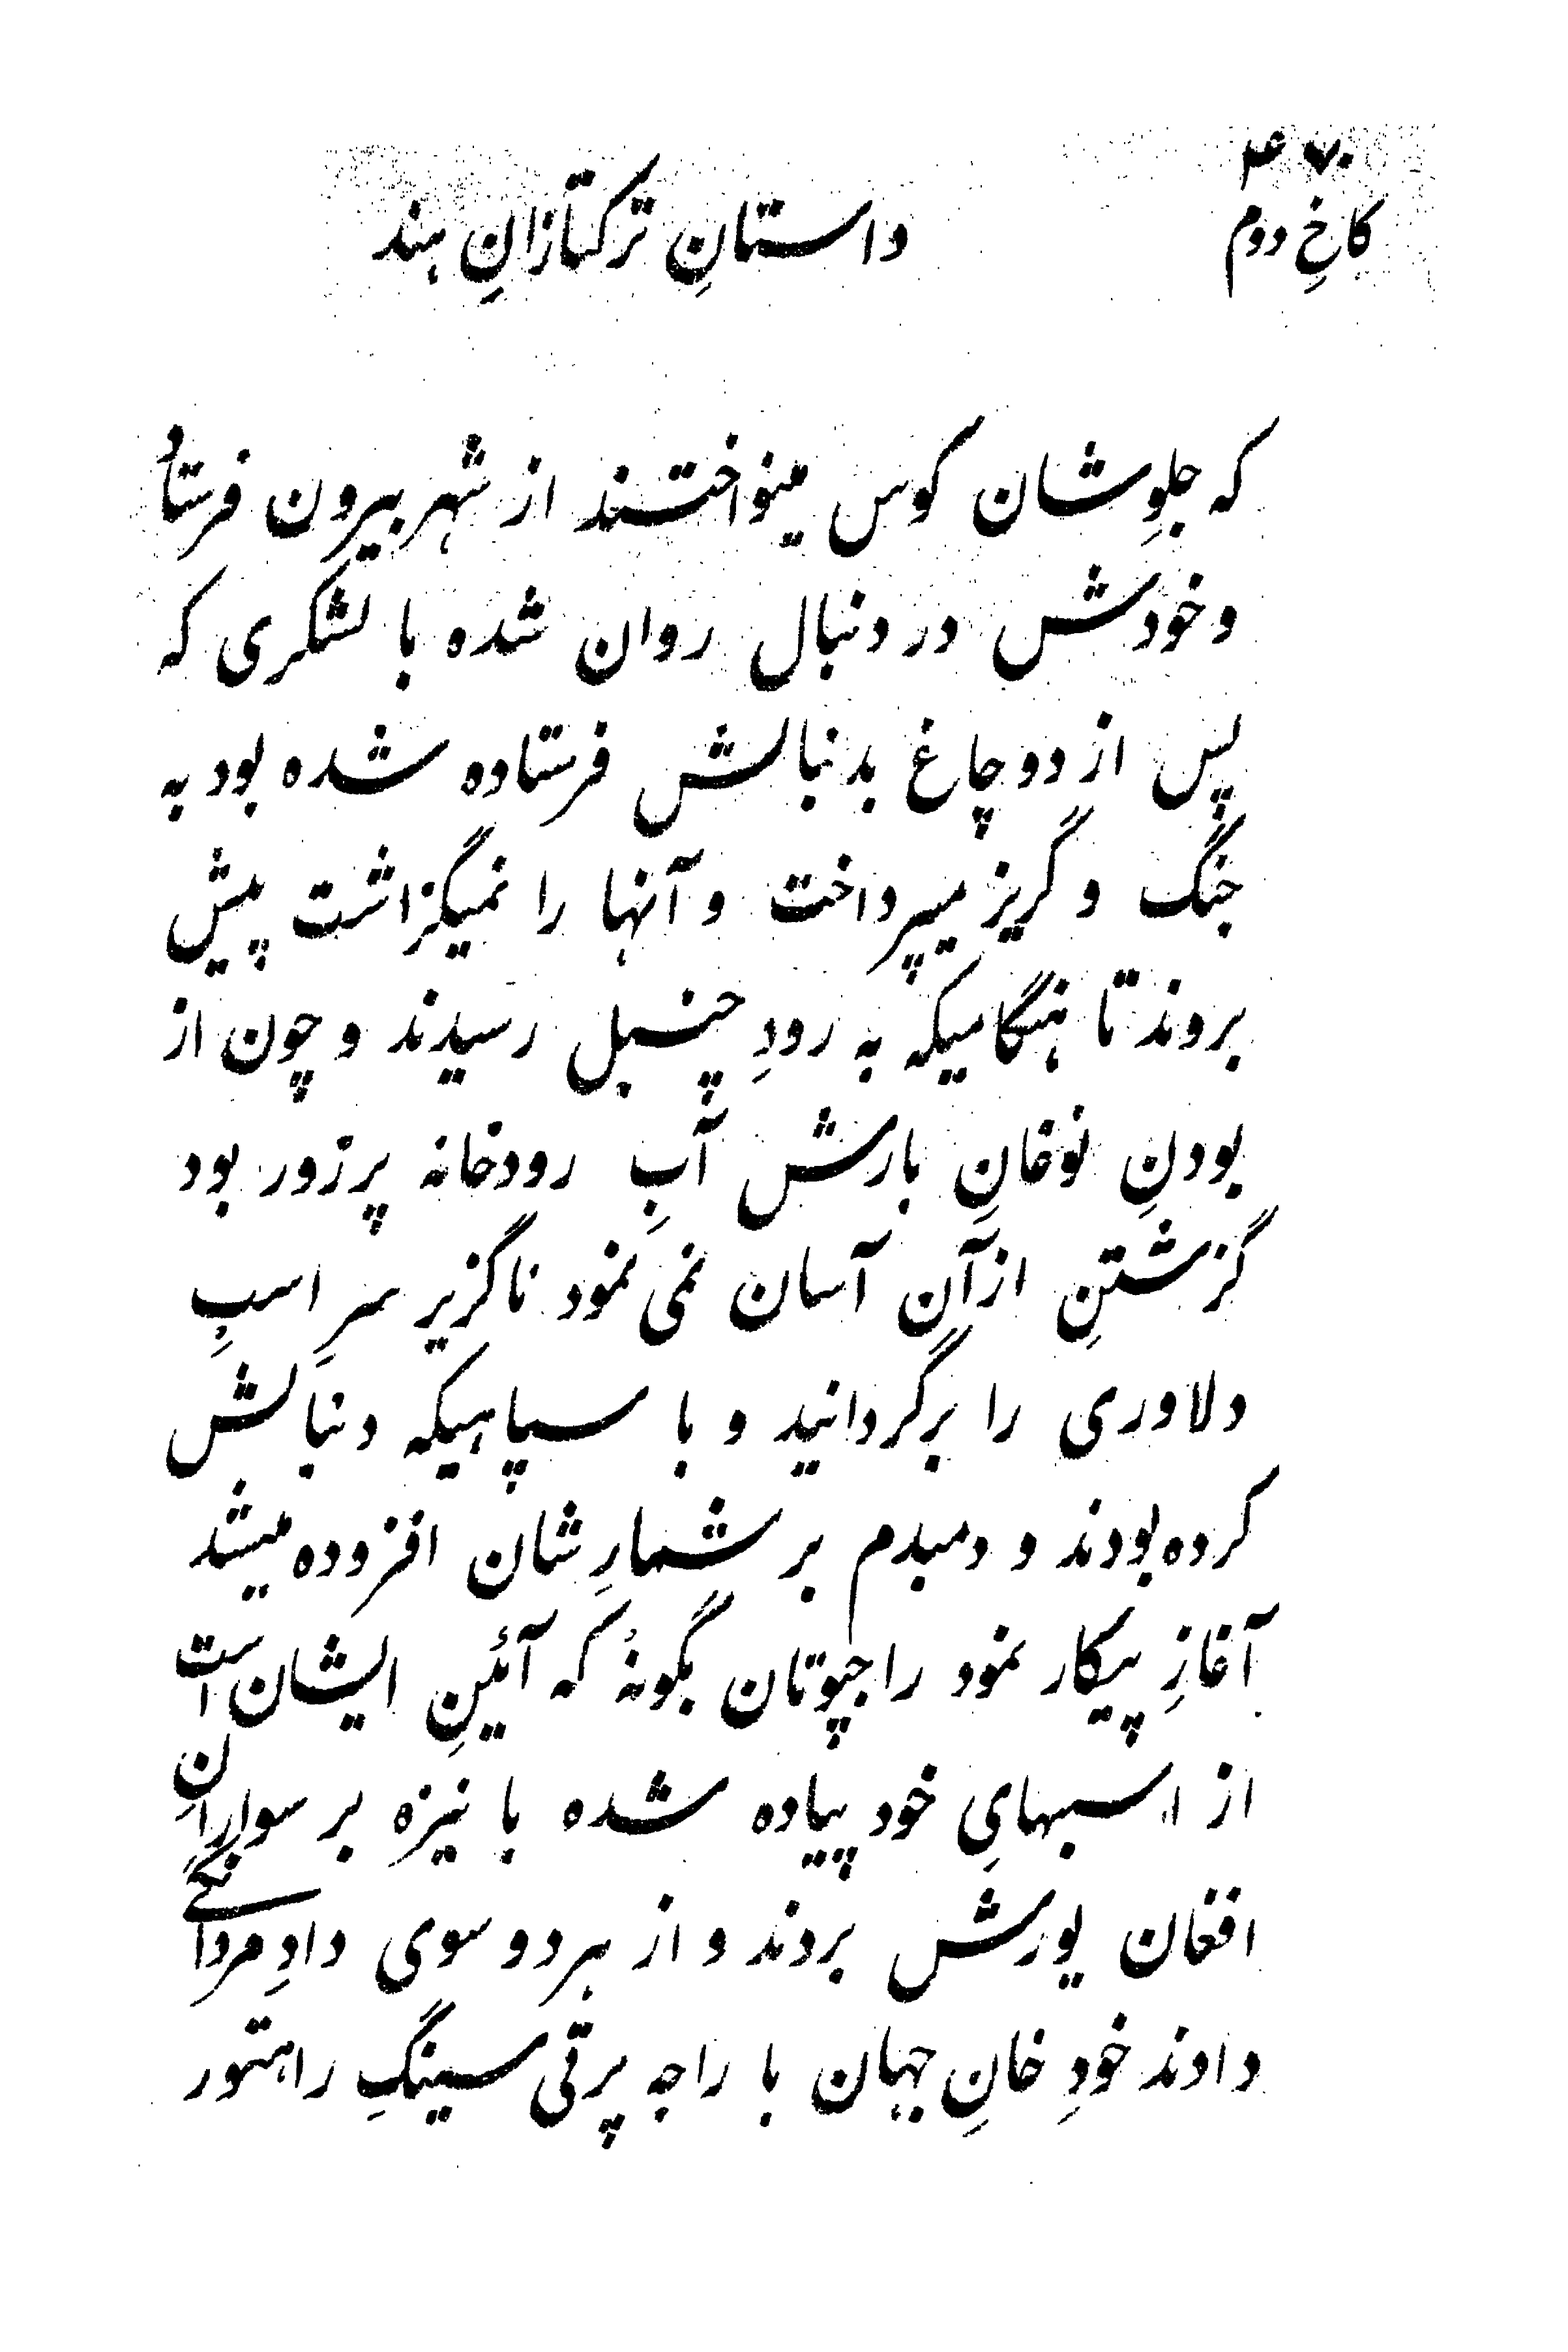 کاخِ دوم
داستانِ ترکتازانِ هند
که جلوِشان کوس مینواختند از شهر بیرون فرستاد
و خودش در دنبال روان شده با لشکری که
پس از دو چاغ بدنبالش فرستاده شده بود به
جنگ و گریز میپرداخت و آنها را نمیگزاشت پیش
بروند تا هنگامیکه به رودِ چنبل رسیدند و چون از
بودنِ نوغانِ بارش آبِ رودخانه پر زور بود
گزشتنِ از آن آسان نمی نمود ناگزیر سرِ اسبِ
دلاوری را برگردانید و با سپاهیکه دنبالش
کرده بودند و دمبدم بر شمارِ شان افزوده میشد
آغازِ پیکار نمود راجپوتان بگونۀ که آئینِ ایشان است
از اسبهایِ خود پیاده شده با نیزه بر سوارانِ
افغان یورش بردند و از هر دو سوی دادِ مردانگی
دادند خودِ خانِ جهان با راجه پرتی سینگِ راهتور